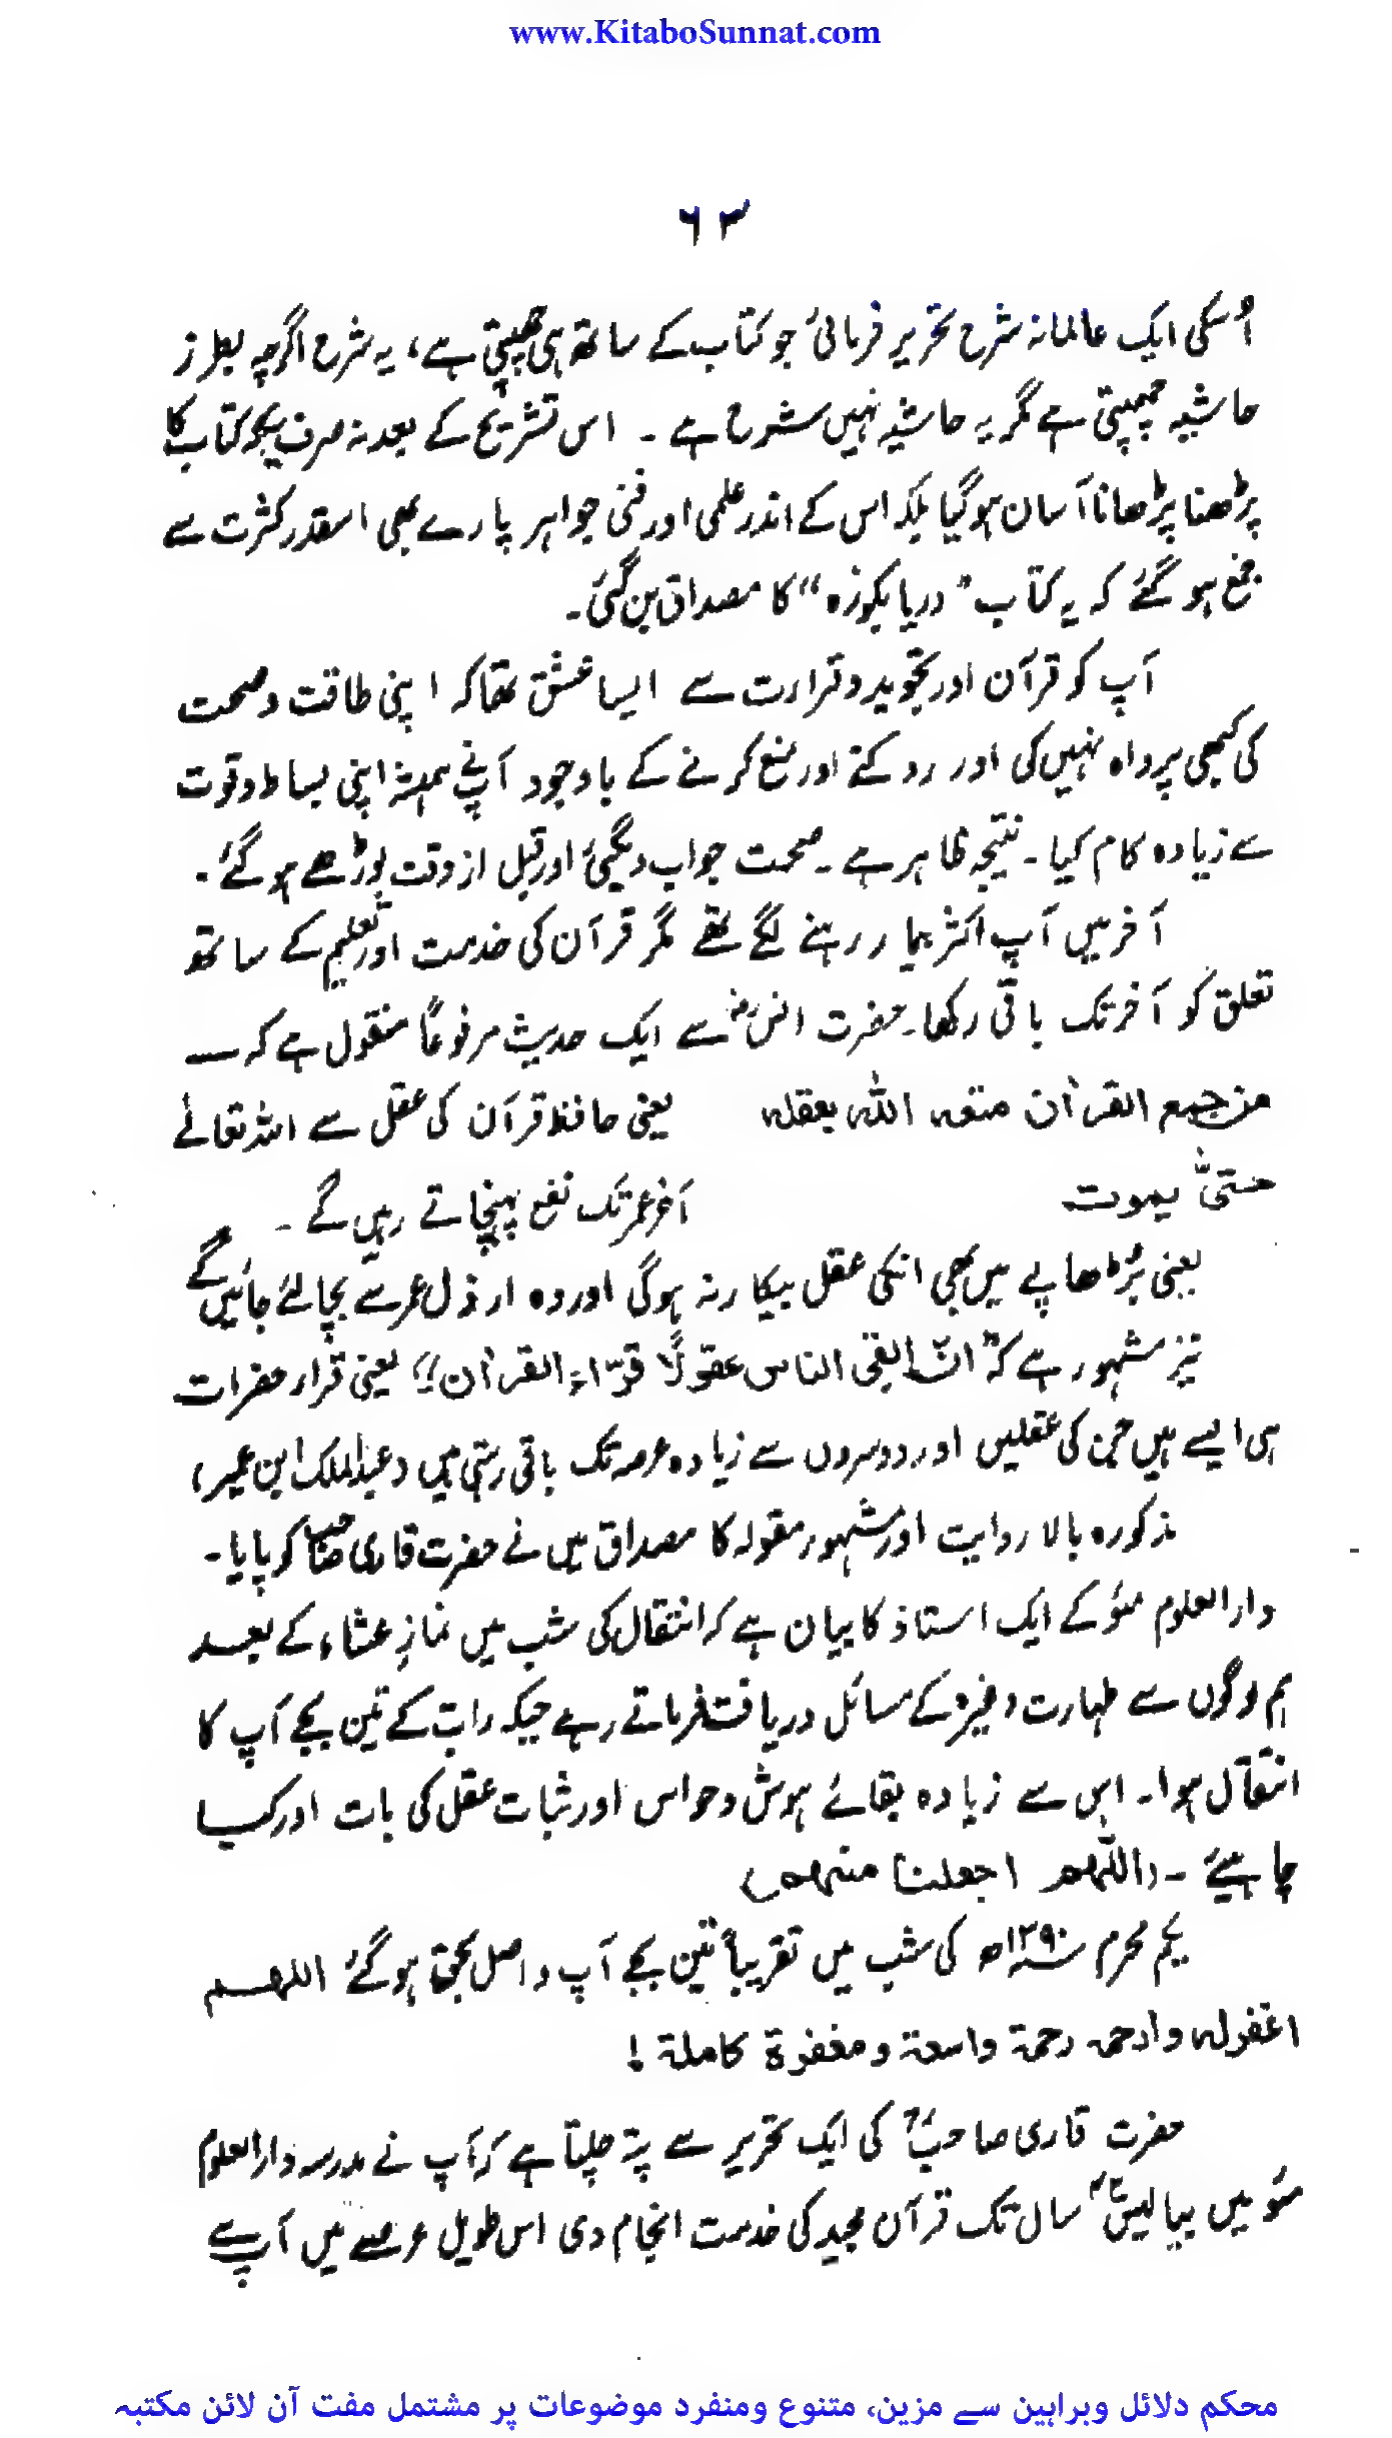 www.KitaboSunnat.com
۶۳
اُسکی ایک عالمانہ شرح تحریر فرمائی جو کتاب کے ساتھ ہی چھپتی ہے، یہ شرح اگرچہ بطرز
حاشیہ چھپتی ہے مگر یہ حاشیہ نہیں شرح ہے ۔ اس تشریح کے بعد نہ صرف یہ کہ کتاب کا
پڑھنا پڑھانا آسان ہوگیا بلکہ اس کے اندر علمی اور فنی جواہر پارے بھی اسقدر کثرت سے
جمع ہو گئے کہ یہ کتاب "دریا بکوزہ" کا مصداق بن گئی۔
آپ کو قرآن اور تجوید و قراءت سے ایسا عشق تھا کہ اپنی طاقت و صحت
کی کبھی پرواہ نہیں کی اور روکنے اور منع کرنے کے باوجود آپنے ہمیشہ اپنی بساط و قوت
سے زیادہ کام کیا ۔ نتیجہ ظاہر ہے ۔ صحت جواب دیگئی اور قبل از وقت بوڑھے ہو گئے ۔
آخر میں آپ اکثر بیمار رہنے لگے تھے مگر قرآن کی خدمت اور تعلیم کے ساتھ
تعلق کو آخر تک باقی رکھا۔ حضرت انسؓ سے ایک حدیث مرفوعاً منقول ہے کہ ــــ
من جمع القرآن متعہ اللہ بعقلہ یعنی حافظ قرآن کی عقل سے اللہ تعالے
حتیّٰ یموت آخر عمر تک نفع پہنچاتے رہیں گے ۔
یعنی بُڑھاپے میں بھی انکی عقل بیکار نہ ہوگی اور وہ ارذل عمر سے بچالئے جائیں گے
نیز مشہور ہے کہ "انّ ابقی الناس عقولاً قرّاء القرآن" یعنی قراء حضرات
ہی ایسے ہیں جن کی عقلیں اور دوسروں سے زیادہ عرصہ تک باقی رہتی ہیں (عبدالملک ابن عمیر)
مذکورہ بالا روایت اور مشہور مقولہ کا مصداق میں نے حضرت قاری صاحب کو پایا ۔
دارالعلوم مئو کے ایک استاذ کا بیان ہے کہ انتقال کی شب میں نمازِ عشاء کے بعد
ہم لوگوں سے طہارت وغیرہ کے مسائل دریافت فرماتے رہے جبکہ رات کے تین بجے آپ کا
انتقال ہوا۔ اس سے زیادہ بقائے ہوش وحواس اور ثبات عقل کی بات اور کیا
چاہیئے ۔ (اللّٰھم اجعلنا منھم)
یکم محرم ۱۳۹۰ھ کی شب میں تقریباً تین بجے آپ واصل بحق ہو گئے اللھم
اغفرلہ وارحمہ رحمۃ واسعۃ و مغفرۃ کاملۃ !
حضرت قاری صاحبؒ کی ایک تحریر سے پتہ چلتا ہے کہ آپ نے مدرسہ دارالعلوم
مئو میں بیالیس سال تک قرآن مجید کی خدمت انجام دی اس طویل عرصے میں آپ سے
محکم دلائل وبراہین سے مزین، متنوع ومنفرد موضوعات پر مشتمل مفت آن لائن مکتبہ